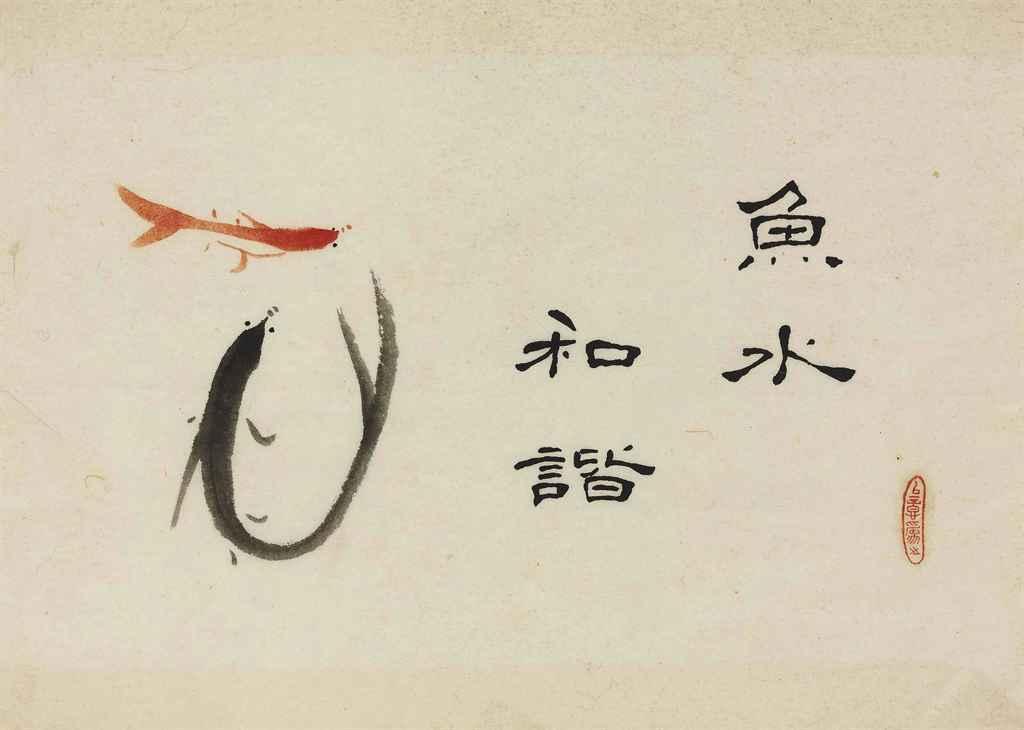 魚水
和諧